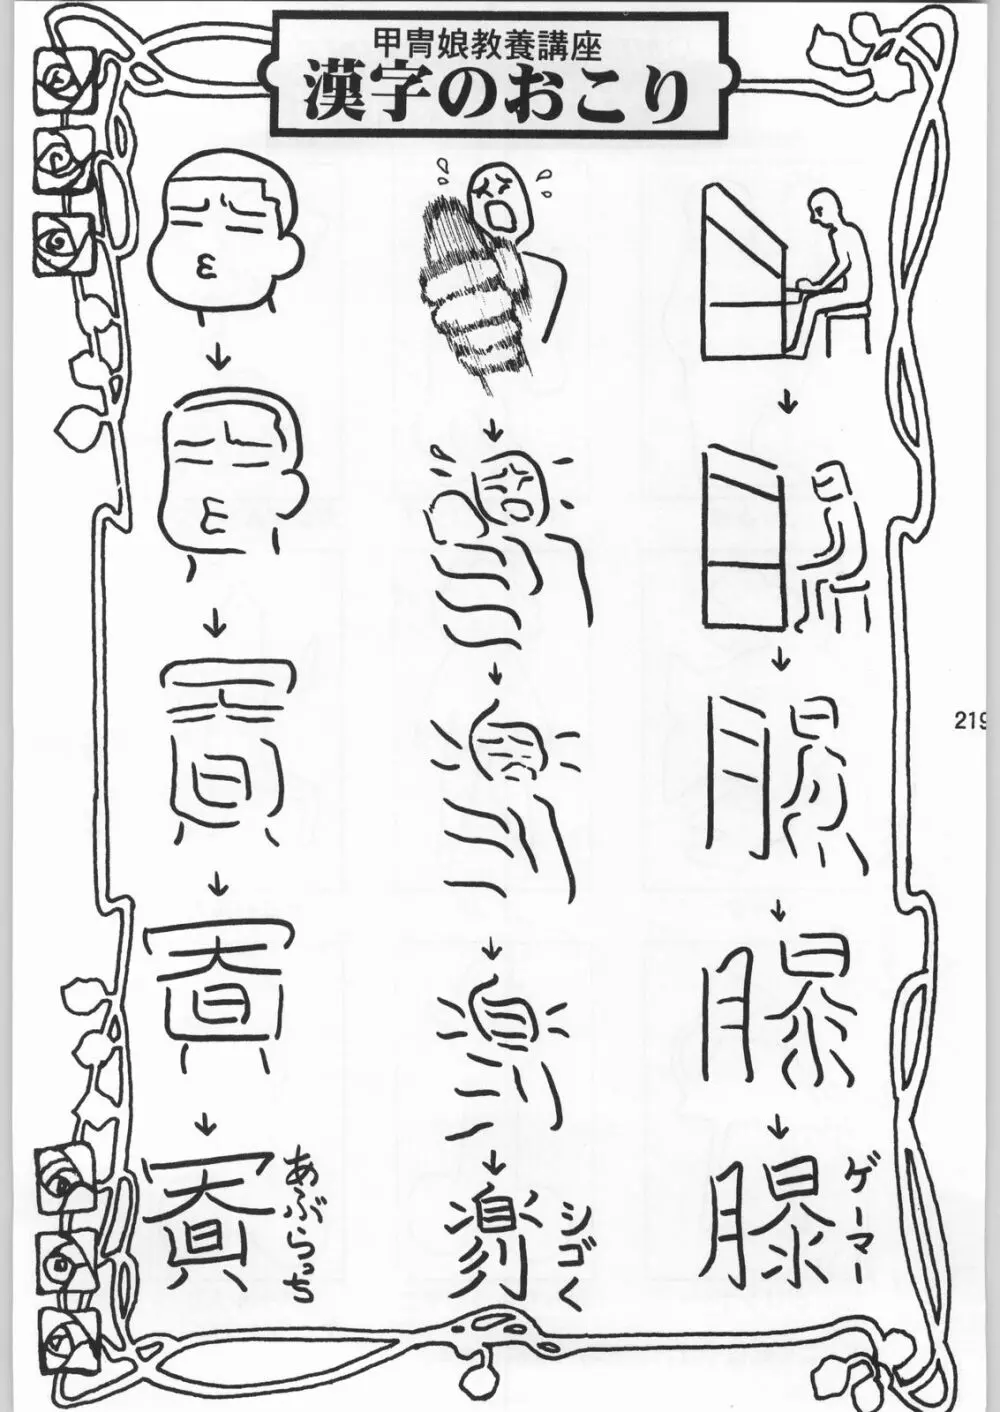 甲冑娘教養講座
漢字のおこり
219
ゲーマー
シゴく
あぶらっち